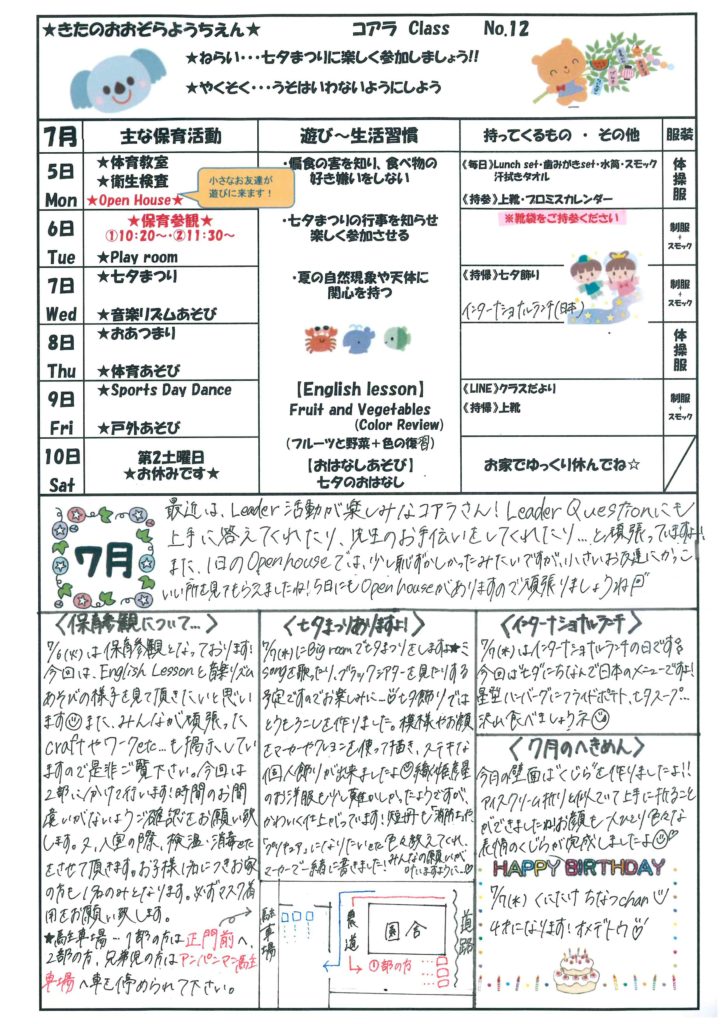 ★きたのおおぞらようちえん★　コアラ Class　No.12
★ねらい･･･七夕まつりに楽しく参加しましょう!!
★やくそく･･･うそはいわないようにしよう
7月　主な保育活動　遊び～生活習慣　持ってくるもの ・ その他　服装
5日
Mon
★体育教室
★衛生検査
★Open House★
小さなお友達が
遊びに来ます！
・偏食の害を知り、食べ物の
好き嫌いをしない
《毎日》Lunch set・歯みがきset・水筒・スモック
汗拭きタオル
《持参》上靴・プロミスカレンダー
体操服
6日
Tue
★保育参観★
①10:20～・②11:30～
★Play room
・七夕まつりの行事を知らせ
楽しく参加させる
※靴袋をご持参ください
制服
+
スモック
7日
Wed
★七夕まつり
★音楽リズムあそび
・夏の自然現象や天体に
関心を持つ
《持帰》七夕飾り
インターナショナルランチ(日本)
制服
+
スモック
8日
Thu
★おあつまり
★体育あそび
体操服
9日
Fri
★Sports Day Dance
★戸外あそび
【English lesson】
Fruit and Vegetables
(Color Review)
(フルーツと野菜＋色の復習)
《LINE》クラスだより
《持帰》上靴
制服
+
スモック
10日
Sat
第2土曜日
★お休みです★
【おはなしあそび】
七夕のおはなし
お家でゆっくり休んでね☆
7月
最近は、Leader活動が楽しみなコアラさん！Leader Questionにも
上手に答えてくれたり、先生のお手伝いをしてくれたり…と頑張っていますよ!
また、1日のOpen houseでは、少し恥ずかしかったみたいですが、小さいお友達にかっこ
いい所を見てもらえましたね！5日にもOpen houseがありますので頑張りましょうね
〈保育参観について…〉
7/6(火)は保育参観となっております!
今回は、English Lessonと音楽リズム
あそびの様子を見て頂きたいと思い
ます☺また、みんなが頑張った
craftやワークetc…も掲示してい
ますので是非ご覧下さい。今回は
2部に分けて行います！時間のお間
違いがないようご確認をお願い致
します。又、入室の際、検温・消毒
をさせて頂きます。お子様1名につきお家
の方も1名のみとなります。必ずマスク着
用をお願い致します。
★駐車場…1部の方は正門前へ、
2部の方、兄弟児の方はアンパンマン駐車
場へ車を停められて下さい。
〈七夕まつりありますよ!〉
7/7(水)にBig roomで七夕まつりをしますよ★
songを歌ったり、ブラックシアターを見たりする
予定ですのでお楽しみに…♡七夕飾りでは
とうもろこしを作りました。模様やお顔
をマーカーやクレヨンを使って描き、ステキな
個人飾りが出来ましたよ☺織姫彦星
のお洋服も少し難しかったようですが、
かわいく仕上がっています!短冊も「消防士」
「プリキュア」になりたいetc色々教えてくれ、
マーカーで一緒に書きました!みんなの願いが
叶いますように…♡
駐車場
農道
園舎
道路
①部の方
〈インターナショナルランチ〉
7/7(水)はインターナショナルランチの日です
今回は七夕にちなんで日本のメニューですよ!
星型ハンバーグにフライドポテト、七夕スープ…
沢山食べましょうネ☺
〈7月のへきめん〉
今月の壁面は“くじら”を作りましたよ!!
アイスクリーム折りと似ていて上手に折ること
ができましたね!お顔も一人ひとり色々な
表情のくじらが完成しましたよ☺
HAPPY BIRTHDAY
7/7(水) くにたけ ちなつchan♡
4才になります！オメデトウ♡